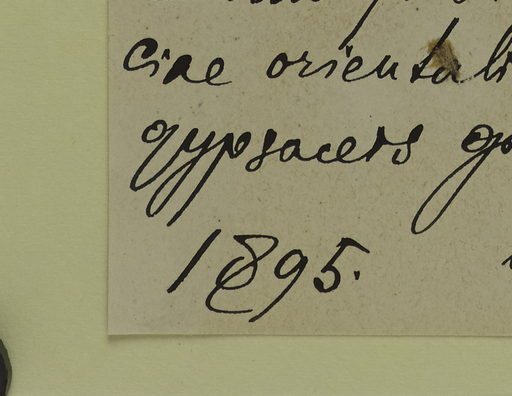 ciae orientali
gypsaceis go
1895.